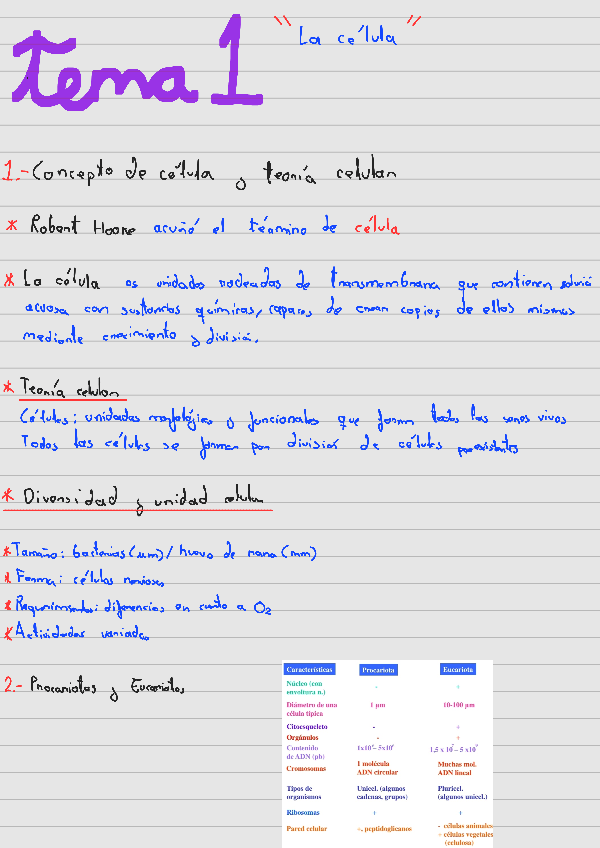 tema 1
"La célula"
1.- Concepto de célula y teoría celular
* Robert Hooke acuñó el término de célula
* La célula es unidades rodeadas de transmembrana que contienen solución
acuosa con sustancias químicas, capaces de crear copias de ellas mismas
mediante crecimiento y división.
* Teoría celular
Células: unidades morfológicas y funcionales que forman todos los seres vivos
Todas las células se forman por división de células preexistentes
* Diversidad y unidad celular
* Tamaño: bacterias (um) / huevo de rana (mm)
* Forma: células nerviosas
* Requerimientos: diferencias en cuanto a O2
* Actividades variadas
2.- Procariotas y Eucariotas
Características Procariota Eucariota
Núcleo (con - +
envoltura n.)
Diámetro de una 1 μm 10-100 μm
célula típica
Citoesqueleto - +
Orgánulos - +
Contenido
de ADN (pb)
Cromosomas 1 molécula Muchas mol.
ADN circular ADN lineal
Tipos de Unicel. (algunos Pluricel.
organismos cadenas, grupos) (algunos unicel.)
Ribosomas + +
Pared celular +, peptidoglicanos - células animales
+ células vegetales
(celulosa)